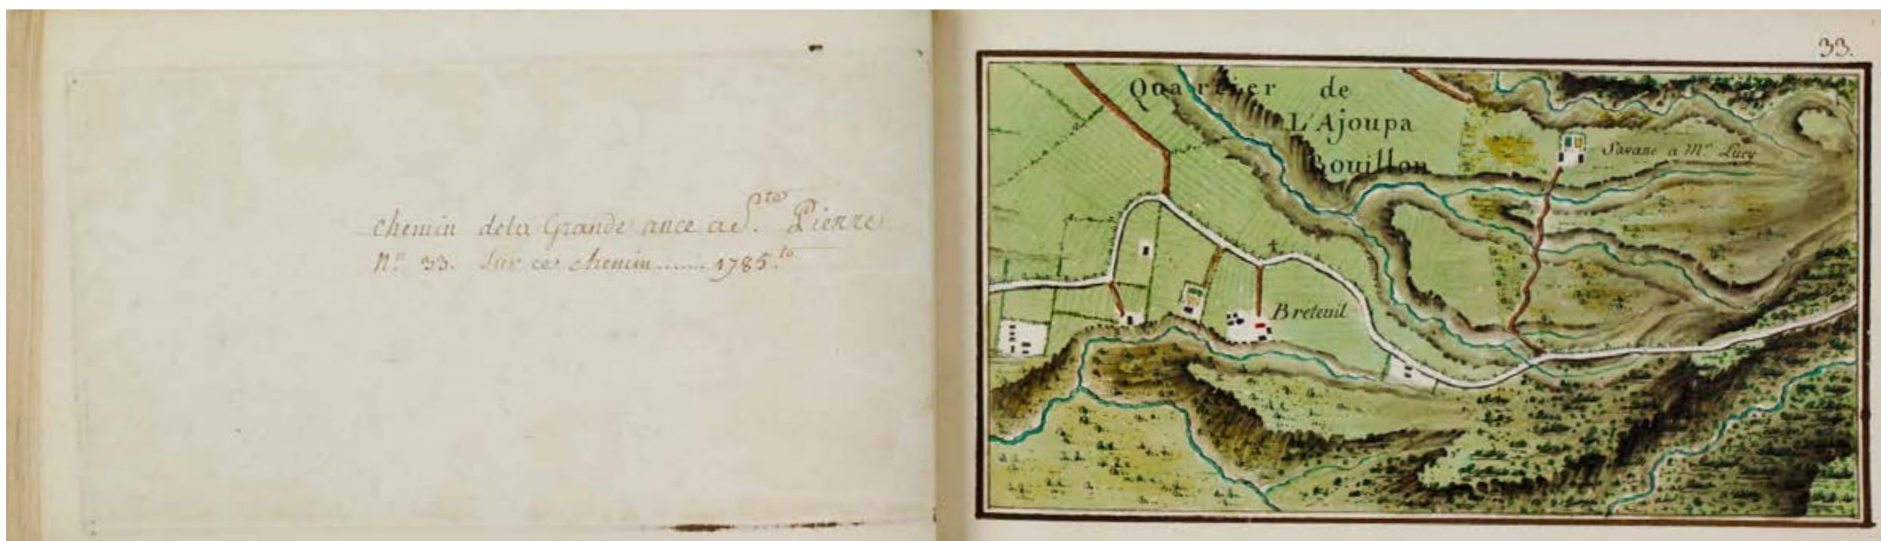 chemin dela Grande ance a St. Pierre
N.° 33. sur ce chemin...... 1785.to
33.
Quartier de
L'Ajoupa
Bouillon
Savane a Mr. Lucy
Breteuil